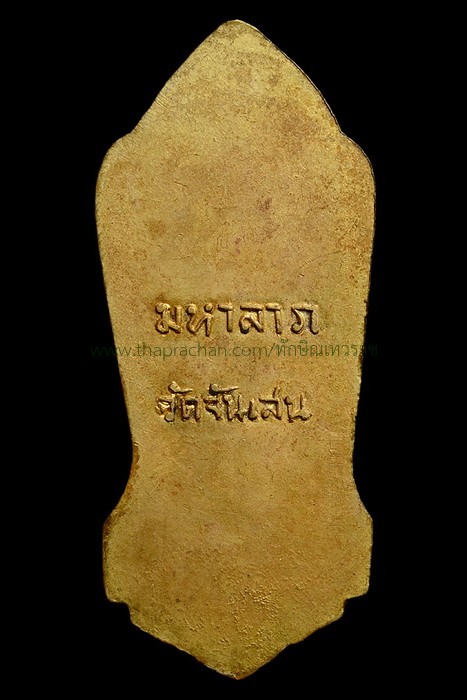 มหาลาภ
www.thaprachan.com/ทักษิณเทวราช
วัดจันเสน